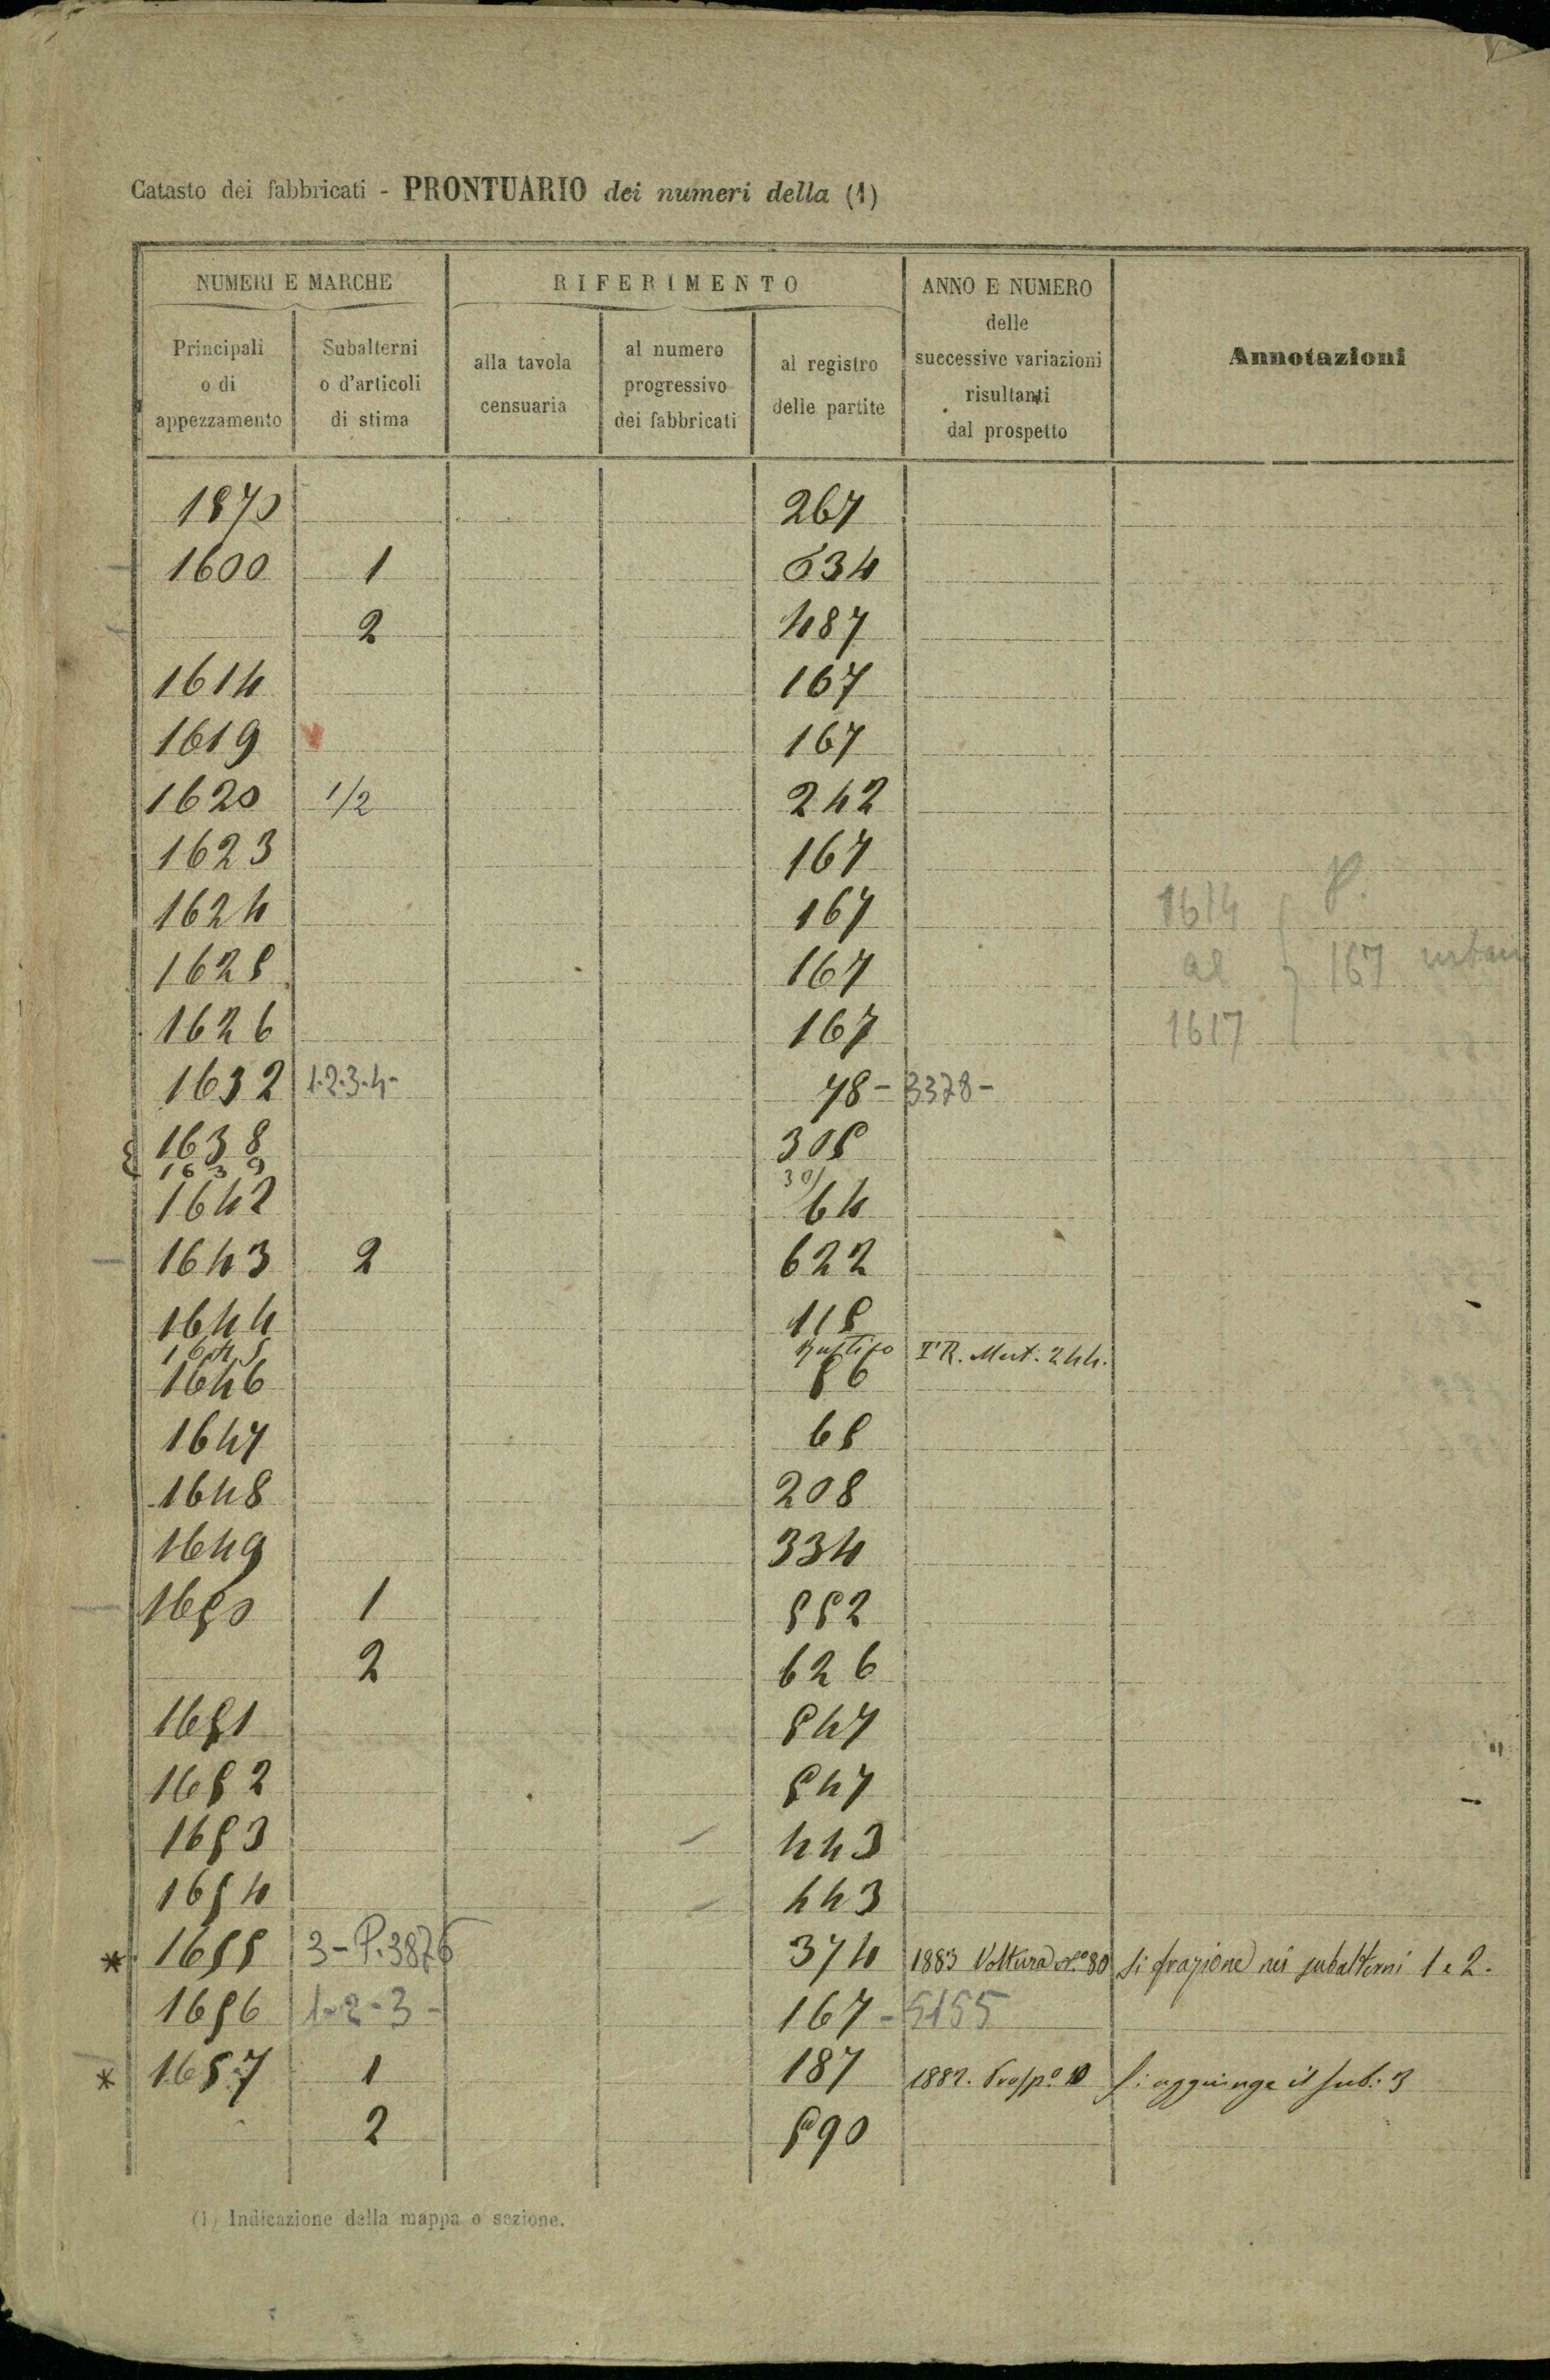 Catasto dei fabbricati - PRONTUARIO dei numeri della (1)
NUMERI E MARCHE RIFERIMENTO ANNO E NUMERO delle successive variazioni risultanti dal prospetto Annotazioni
Principali o di appezzamento Subalterni o d'articoli di stima alla tavola censuaria al numero progressivo dei fabbricati al registro delle partite
1570 267
1600 1 634
2 487
1614 167
1619 167
1620 1/2 242
1623 167
1624 167 1614 P.
1625 167 al 167 urban
1626 167 1617
1632 1.2.3.4- 78- 3378-
1638 305
1639 305
1642 64
1643 2 622
1644 115
1645 Rustico T R. Mut. 244.
1646 56
1647 65
1648 208
1649 334
1650 1 552
2 626
1651 547
1652 547
1653 443
1654 443
* 1655 3-P.3876 374 1883 Voltura No. 80 Si fraziona nei subalterni 1 e 2.
1656 1-2-3- 167- 5155
* 1657 1 187 1882. Prosp.o 10 Si aggiunge il sub. 3
2 590
(1) Indicazione della mappa o sezione.